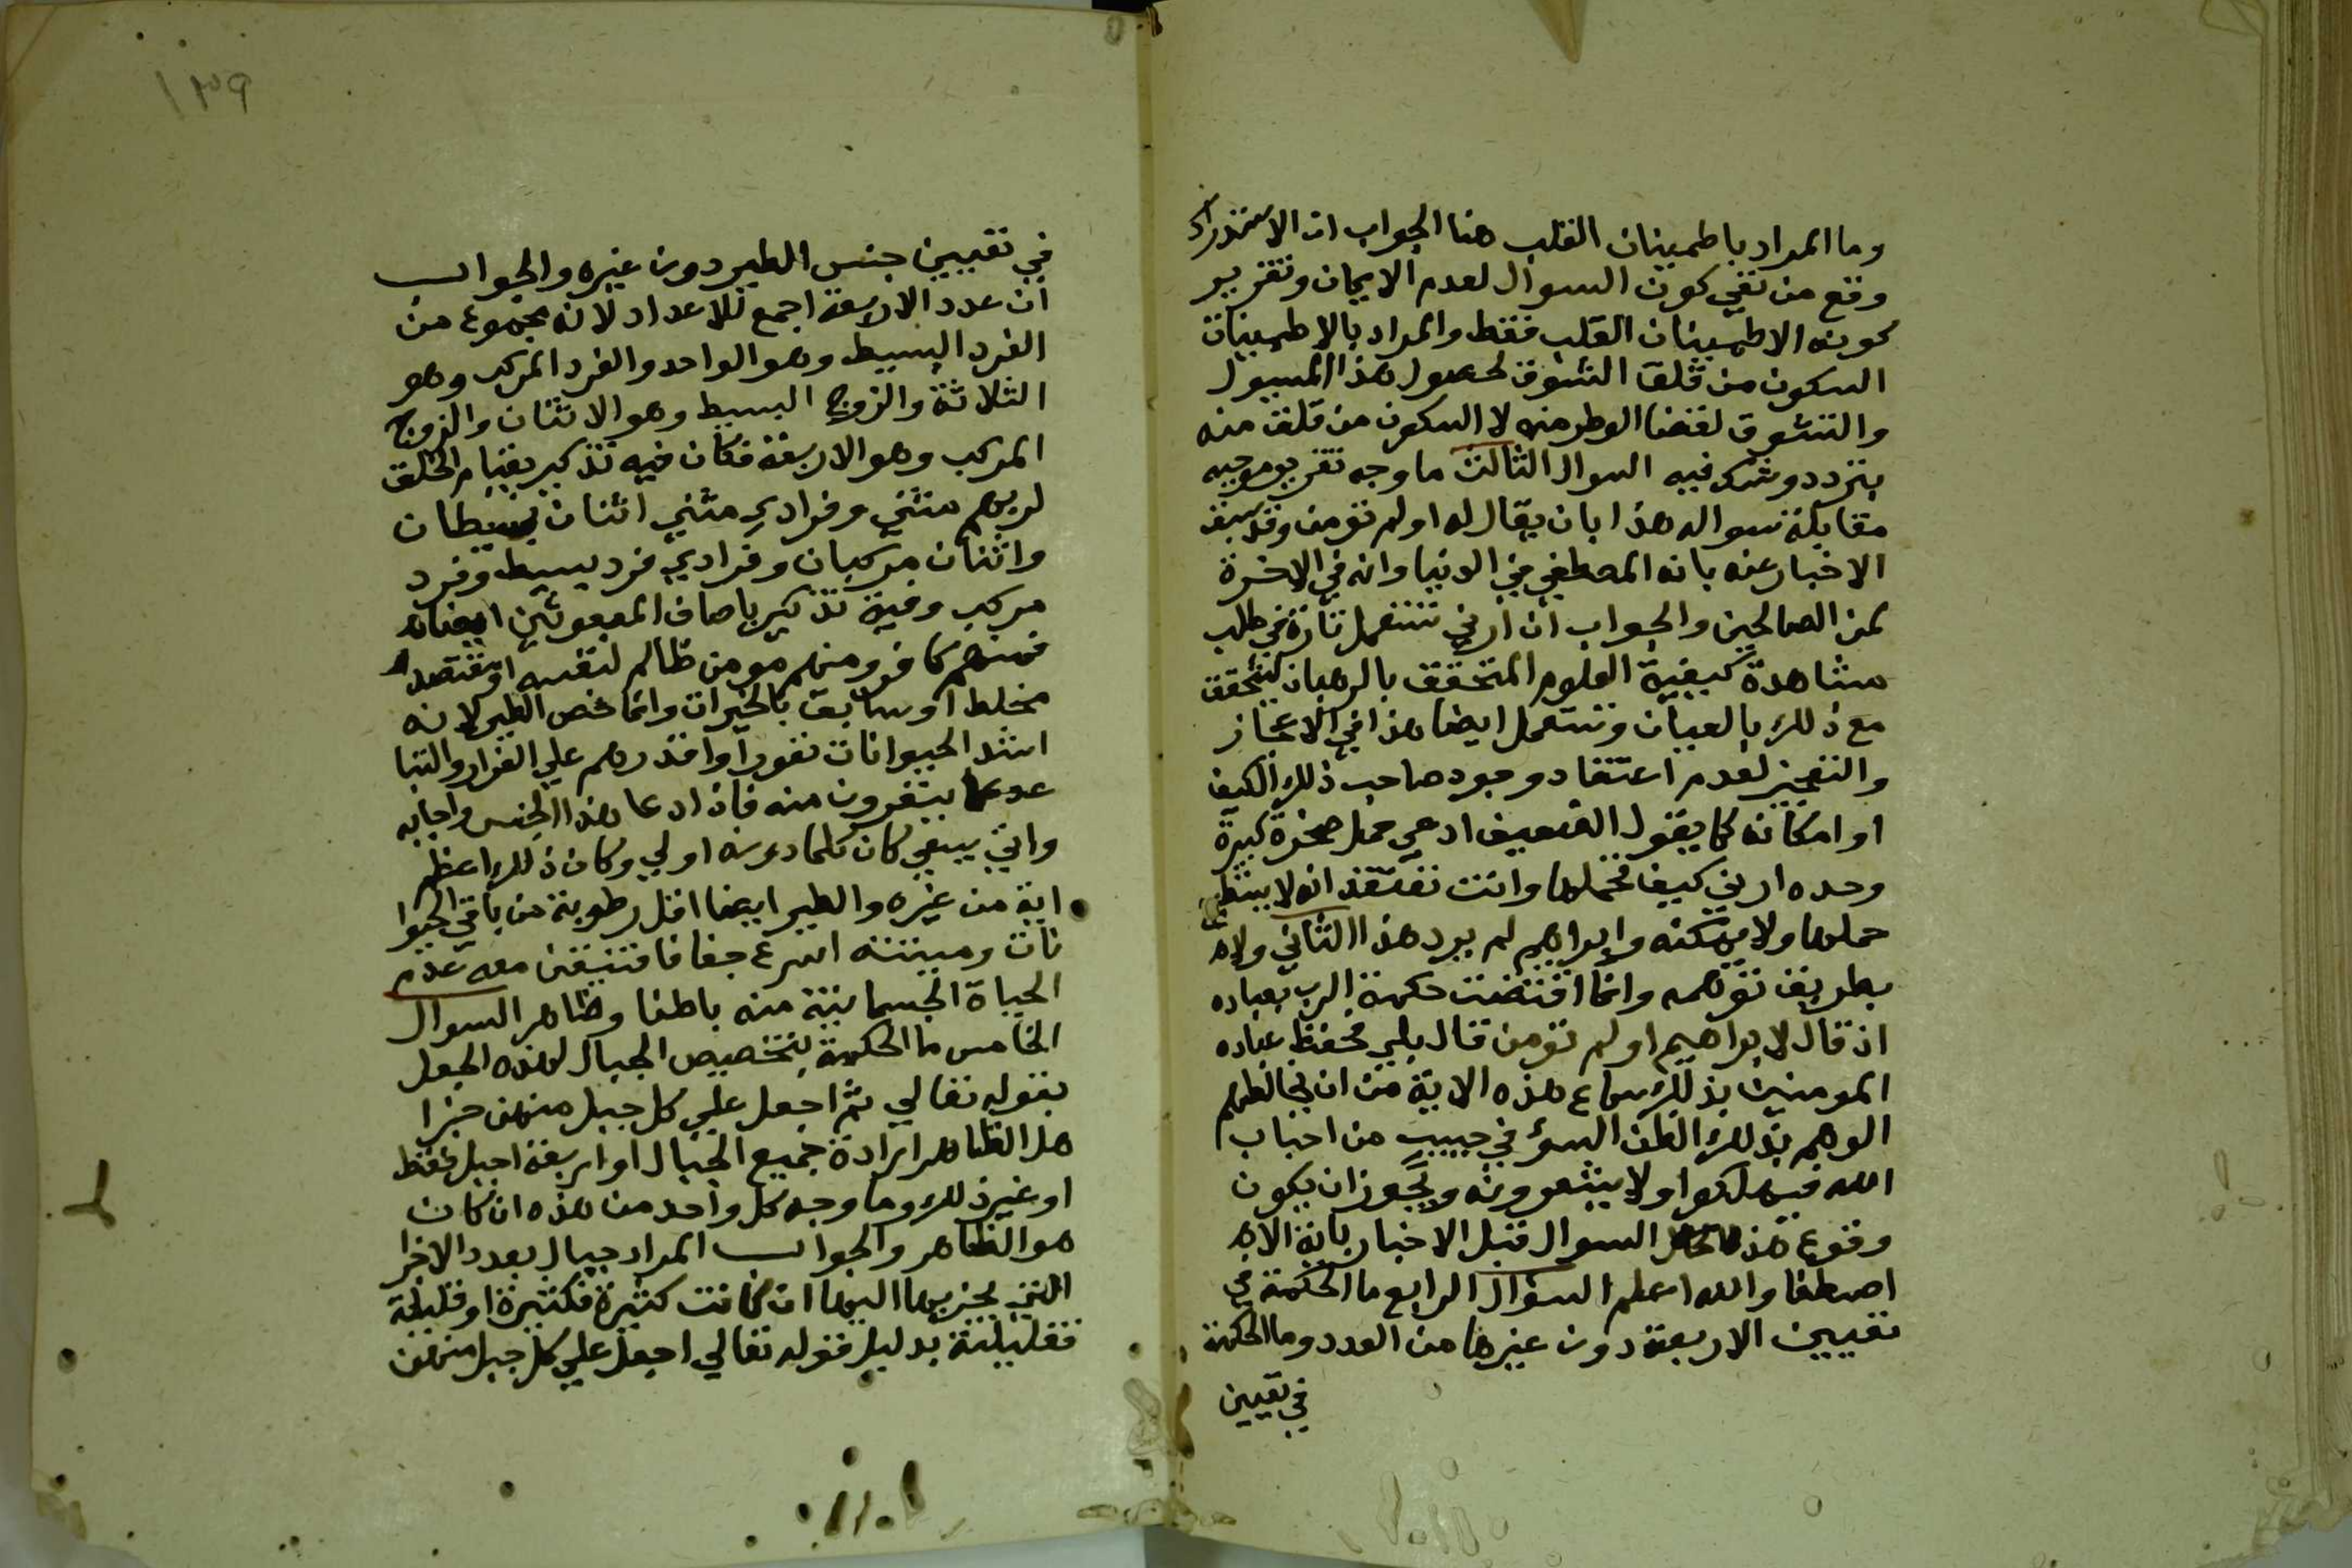 وما المراد باطمينان القلب هنا الجواب ان الاستدراك
وقع من نفي كون السوال لعدم الايمان وتقرير
كونه الاطمينان القلب فقط والمراد بالاطمينان
السكون من قلق التشوق لحصول هذا المسول
والتشوق لقضا الوطر منه لا السكون من قلق منه
بتردد وشك فيه السوال الثالث ما وجه تقرير موجبه
مقابلة سواله هذا بان يقال له اولم تومن وقد سبق
الاخبار عنه بانه المصطفي في الدنيا وانه في الاخرة
لمن الصالحين والجواب ان ارني تستعمل تارة في طلب
مشاهدة كيفية العلوم المتحقق بالبرهان ليتحقق
مع ذلك بالعيان وتستعمل ايضا هذا في الاعجاز
والتعجيز لعدم اعتقاد وجود صاحب ذلك الكيف
او امكانه كما يقول الضعيف ادعي حمل صخرة كبيرة
وحده ارني كيف تحملها وانت تعتقد انه لا يستطيع
حملها ولا يمكنه وابراهيم لم يرد هذا الثاني ولا هو
بطريق توهمه وانما اقتضت حكمة الرب بعباده
اذ قال لابراهيم اولم تومن قال بلي فحفظ عباده
المومنين بذلك سماع هذه الاية من ان يخالطهم
الوهم بذلك الظن السوء في حبيب من احباب
الله فيهلكوا ولا يشعرون ويجوز ان يكون
وقوع هذا السوال قبل الاخبار باية الاه
اصطفا والله اعلم السوال الرابع ما الحكمة في
تعيين الاربعة دون غيرها من العدد وما الحكمة
في تعيين
١٣٩
في تعيين جنس الطير دون غيره والجواب
ان عدد الاربعة اجمع للاعداد لانه مجموع من
الفرد البسيط وهو الواحد والفرد المركب وهو
الثلاثة والزوج البسيط وهو الاثنان والزوج
المركب وهو الاربعة فكان فيه تذكير بقيام الخلق
لربهم مثني وفرادي مثني اثنان بسيطان
واثنان مركبان وفرادي فرد بسيط وفرد
مركب وفيه تذكير باصاف المبعوثين ايضا
فمنهم كافر ومنهم مومن ظالم لنفسه او مقتصد
مخلط او سابق بالخيرات وانما خص الطير لانه
اشد الحيوانات نفورا واقدرهم علي الفرار والتبا
عد عما ينفرون منه فاذا دعا هذا الجنس واجابه
واتي يسعي كان كلما دونه اولي وكان ذلك اعظم
اية من غيره والطير ايضا اقل رطوبة من باقي الحيوا
نات وميتته اسرع جفافا فتيقن معه عدم
الحياة الجسمانية منه باطنا وظاهر السوال
الخامس ما الحكمة بتخصيص الجبال لهذه الجعل
بقوله تعالي ثم اجعل علي كل جبل منهن جزا
هل الظاهر ارادة جميع الجبال او اربعة اجبل فقط
او غير ذلك وما وجه كل واحد من هذه ان كان
هو الظاهر والجواب المراد جبال بعدد الاجزا
التي يجزيها اليها ان كانت كثيرة فكثيرة او قليلة
فقليلة بدليل قوله تعالي اجعل علي كل جبل منهن